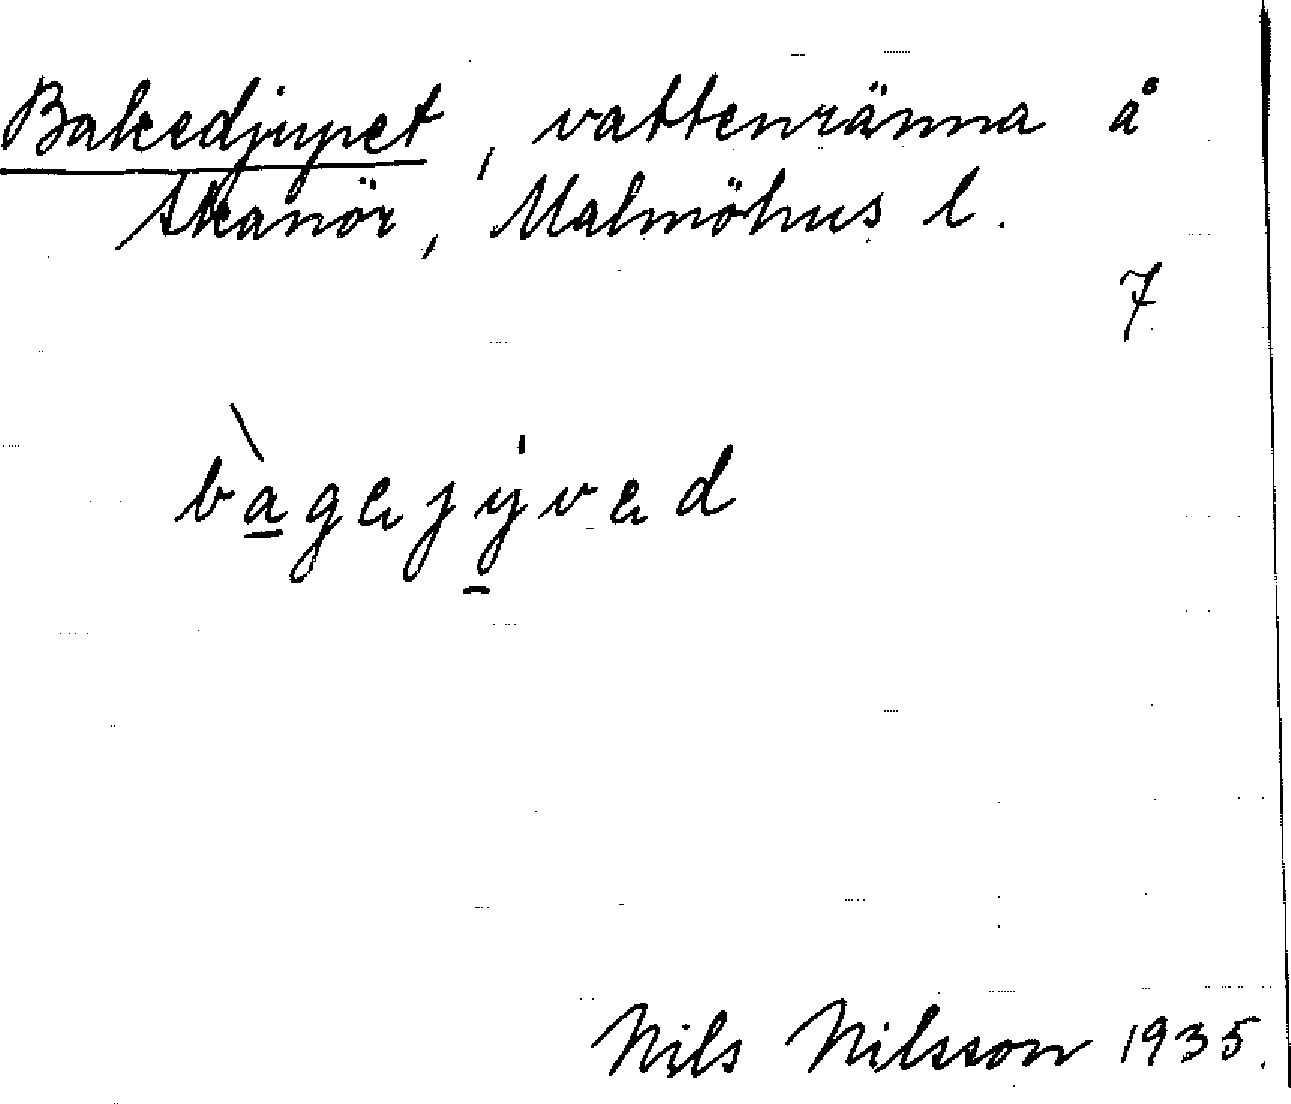 Bakedjupet, vattenränna å
Skanör, Malmöhus l.
7
bàgejyved
Nils Nilsson 1935.